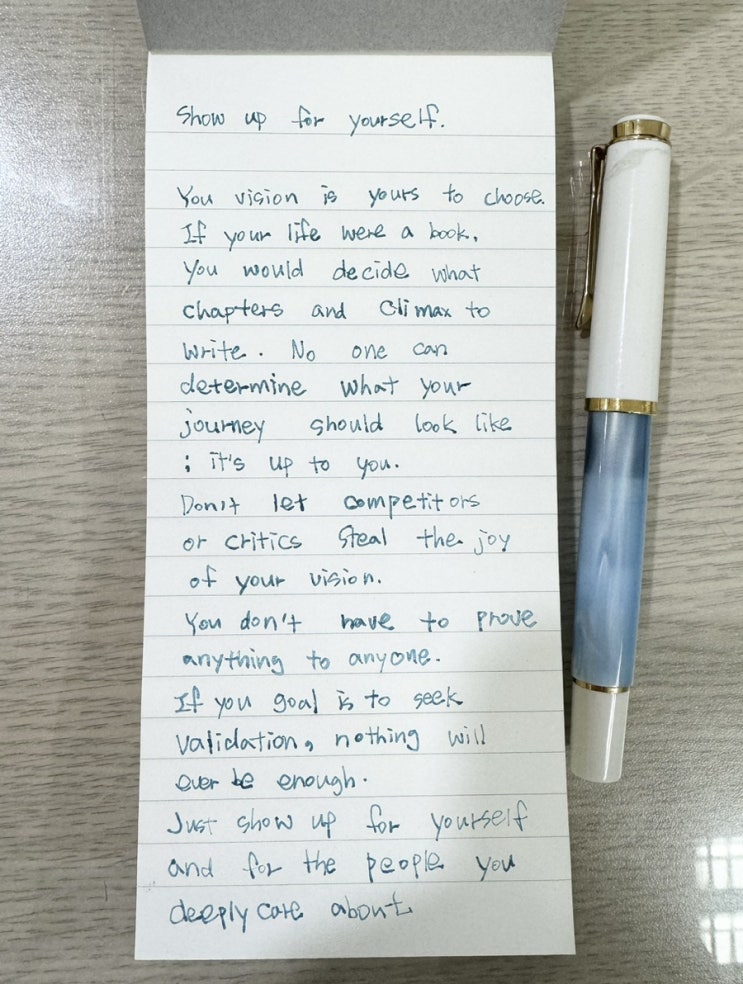 Show up for yourself.
You vision is yours to choose.
If your life were a book,
You would decide what
chapters and Climax to
write. No one can
determine what your
journey should look like
; it's up to you.
Don't let competitors
or critics steal the joy
of your vision.
You don't have to prove
anything to anyone.
If you goal is to seek
validation, nothing will
ever be enough.
Just show up for yourself
and for the people you
deeply care about